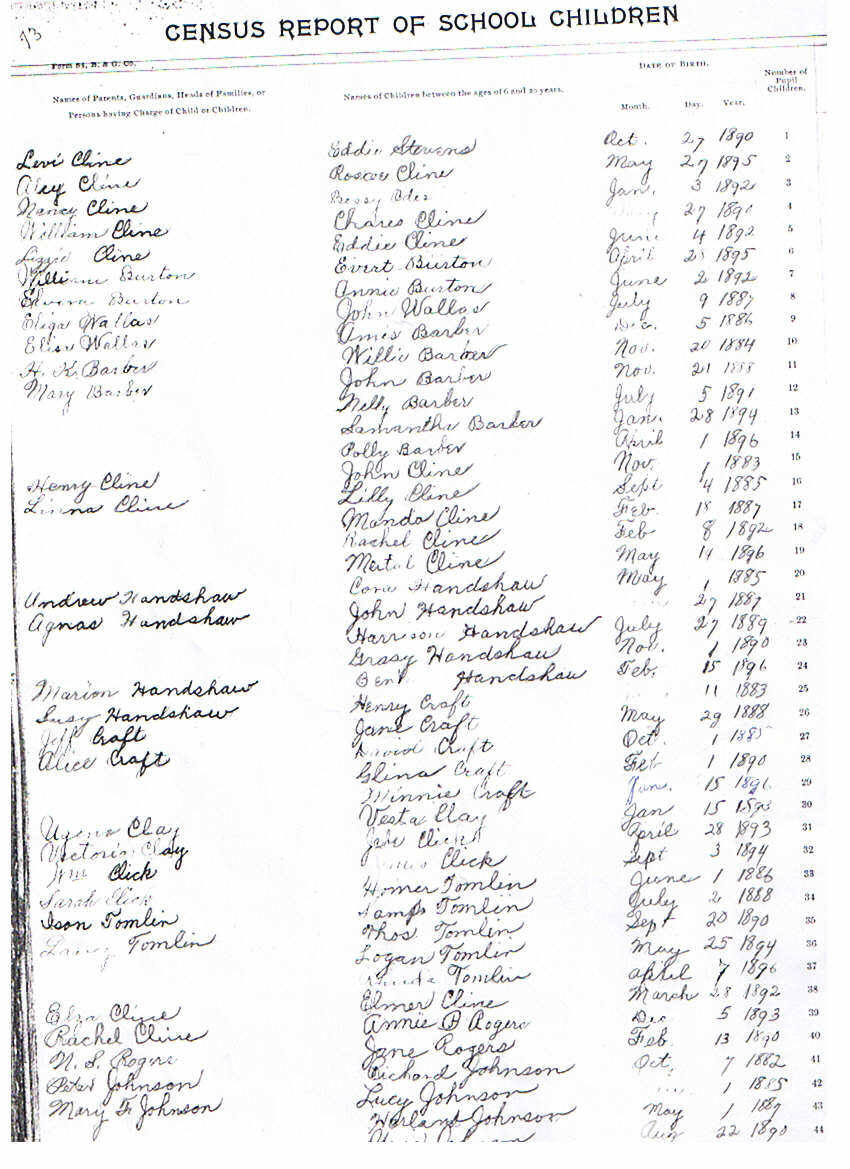 73
CENSUS REPORT OF SCHOOL CHILDREN
Form 84, B. & G. Co.
Names of Parents, Guardians, Heads of Families, or Persons having Charge of Child or Children.
Names of Children between the ages of 6 and 20 years.
DATE OF BIRTH.
Month. Day. Year.
Number of Pupil Children.
Levi Cline Eddie Stevens Oct. 27 1890 1
Aley Cline Roscoe Cline May 27 1895 2
Nancy Cline Bessy Oder Jan. 3 1892 3
William Cline Chares Cline 27 1890 4
Lizzie Cline Eddie Cline June 4 1892 5
William Burton Evert Burton April 1895 6
Elvora Burton Annie Burton June 2 1892 7
Eliga Wallas John Wallas July 9 1887 8
Elisa Wallas Amis Barber Dec. 5 1886 9
H. K. Barber Willie Barber Nov. 20 1884 10
Mary Barber John Barber Nov. 21 1888 11
Nelly Barber July 5 1891 12
Samantha Barber Jan. 28 1894 13
Polly Barber April 1 1896 14
Henry Cline John Cline Nov. 1 1883 15
Linna Cline Lilly Cline Sept 4 1885 16
Manda Cline Feb. 18 1887 17
Rachel Cline Feb 8 1892 18
Mertal Cline May 11 1896 19
Andrew Handshaw Cora Handshaw May 1 1885 20
Agnas Handshaw John Handshaw 27 1887 21
Harrison Handshaw July 27 1889 22
Grasy Handshaw Nov. 1 1890 23
Marion Handshaw Handshaw Feb. 15 1896 24
Susy Handshaw Henry Craft 11 1883 25
Jeff Craft Jane Craft May 29 1888 26
Alice Craft David Craft Oct. 1 1885 27
Glina Craft Feb 1 1890 28
Minnie Craft June 15 1891 29
Ugene Clay Vesta Clay Jan 15 1893 30
Victoria Clay Click April 28 1893 31
Wm Click Click Sept 3 1894 32
Sarah Click Homer Tomlin June 1 1886 33
Ison Tomlin Tomlin July 2 1888 34
Tomlin Thos. Tomlin Sept 20 1890 35
Logan Tomlin May 25 1894 36
Tomlin april 7 1896 37
Elza Cline Elmer Cline March 28 1892 38
Rachel Cline Annie B Rogers Dec 5 1893 39
N. S. Rogers Jane Rogers Feb. 13 1890 40
Peter Johnson Richard Johnson Oct, 7 1882 41
Mary F. Johnson Lucy Johnson 1 1885 42
Harland Johnson May 1 1887 43
Johnson Aug 22 1890 44